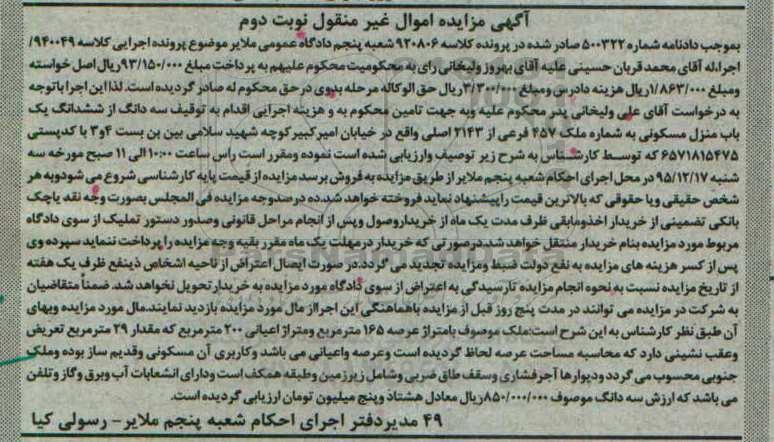 آگهی مزایده اموال غیر منقول نوبت دوم
بموجب دادنامه شماره ۵۰۰۳۲۲ صادر شده در پرونده کلاسه ۹۲۰۸۰۶ شعبه پنجم دادگاه عمومی ملایر موضوع پرونده اجرایی کلاسه ۹۴۰۰۴۹/
اجرا،له آقای محمد قربان حسینی علیه آقای بهروز ولیخانی رای به محکومیت محکوم علیهم به پرداخت مبلغ ۹۳/۱۵۰/۰۰۰ریال اصل خواسته
ومبلغ ۱/۸۶۳/۰۰۰ریال هزینه دادرسی ومبلغ ۳/۳۰۰/۰۰۰ریال حق الوکاله مرحله بدوی در حق محکوم له صادر گردیده است. لذا این اجرا باتوجه
به درخواست آقای علی ولیخانی پدر محکوم علیه وبه جهت تامین محکوم به و هزینه اجرایی اقدام به توقیف سه دانگ از ششدانگ یک
باب منزل مسکونی به شماره ملک ۴۵۷ فرعی از ۲۱۴۳ اصلی واقع در خیابان امیرکبیر کوچه شهید سلامی بین بن بست ۴و۳ با کدپستی
۶۵۷۱۸۱۵۴۷۵ که توسط کارشناس به شرح زیر توصیف وارزیابی شده است نموده ومقرر است راس ساعت ۱۰:۰۰ الی ۱۱ صبح مورخه سه
شنبه ۹۵/۱۲/۱۷ در محل اجرای احکام شعبه پنجم ملایر از طریق مزایده به فروش برسد مزایده از قیمت پایه کارشناسی شروع می شودوبه هر
شخص حقیقی ویا حقوقی که بالاترین قیمت را پیشنهاد نماید فروخته خواهد شد.ده درصدوجه مزایده فی المجلس بصورت وجه نقد یاچک
بانکی تضمینی از خریدار اخذومابقی ظرف مدت یک ماه از خریداروصول وپس از انجام مراحل قانونی وصدور دستور تملیک از سوی دادگاه
مربوط مورد مزایده بنام خریدار منتقل خواهد شد.درصورتی که خریدار در مهلت یک ماه مقرر بقیه وجه مزایده را پرداخت ننماید سپرده وی
پس از کسر هزینه های مزایده به نفع دولت ضبط ومزایده تجدید می گردد.در صورت ایصال اعتراض از ناحیه اشخاص ذینفع ظرف یک هفته
از تاریخ مزایده نسبت به نحوه انجام مزایده تارسیدگی به اعتراض از سوی دادگاه مورد مزایده به خریدار تحویل نخواهد شد. ضمناً متقاضیان
به شرکت در مزایده می توانند در مدت پنج روز قبل از مزایده باهماهنگی این اجرا از مال مورد مزایده بازدید نمایند.مال مورد مزایده وبهای
آن طبق نظر کارشناس به این شرح است:ملک موصوف بامتراژ عرصه ۱۶۵ مترمربع ومتراژ اعیانی ۲۰۰ مترمربع که مقدار ۲۹ مترمربع تعریض
وعقب نشینی دارد که محاسبه مساحت عرصه لحاظ گردیده است وعرصه واعیانی می باشد وکاربری آن مسکونی وقدیم ساز بوده وملک
جنوبی محسوب می گردد ودیوارها آجرفشاری وسقف طاق ضربی وشامل زیرزمین وطبقه همکف است ودارای انشعابات آب وبرق وگاز وتلفن
می باشد که ارزش سه دانگ موصوف ۸۵۰/۰۰۰/۰۰۰ریال معادل هشتاد وپنج میلیون تومان ارزیابی گردیده است.
۴۹ مدیردفتر اجرای احکام شعبه پنجم ملایر- رسولی کیا